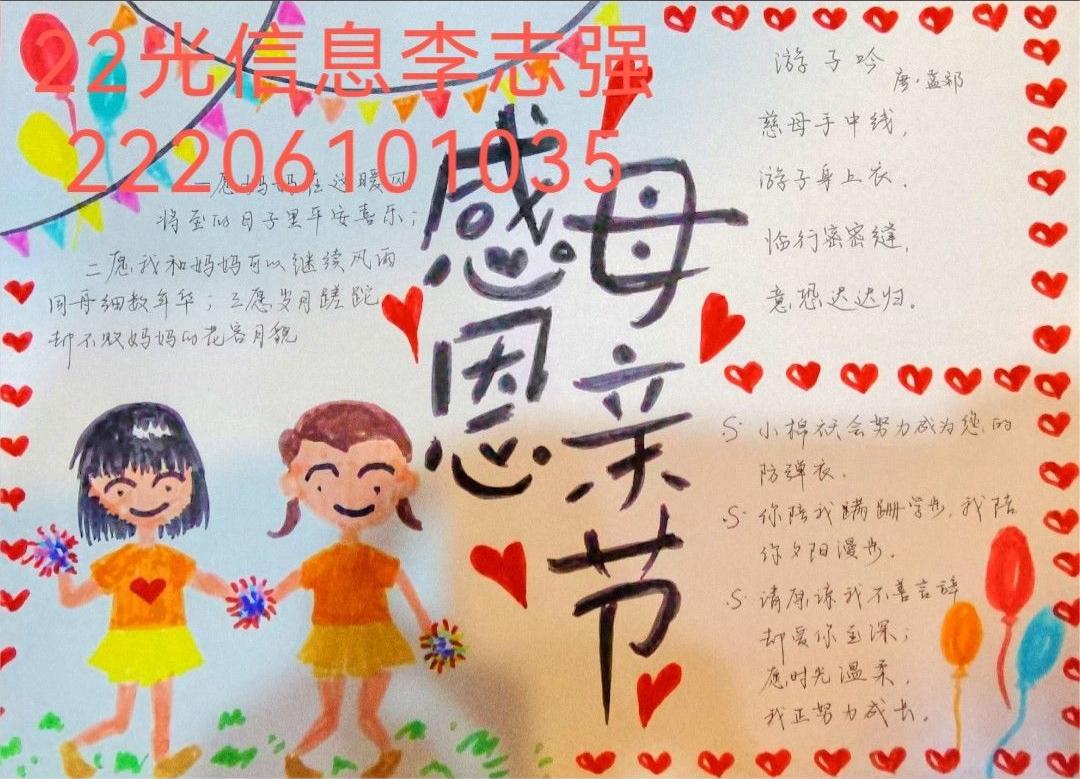 22光信息李志强
22206101035
感恩
母亲节
一愿妈妈在这暖风
将至的日子里平安喜乐；
二愿我和妈妈可以继续风雨
同舟细数年华；三愿岁月蹉跎
却不败妈妈的花容月貌
游子吟
唐·孟郊
慈母手中线，
游子身上衣．
临行密密缝，
意恐迟迟归．
S· 小棉袄会努力成为您的
防弹衣．
S· 你陪我蹒跚学步，我陪
你夕阳漫步．
S· 请原谅我不善言辞
却爱你至深；
愿时光温柔，
我正努力成长．